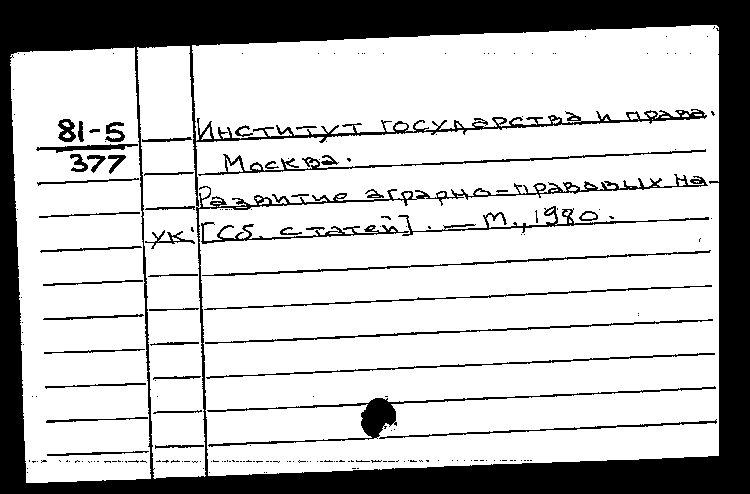 81-5
377
Институт государства и права.
Москва.
Развитие аграрно-правовых на-
ук: [Сб. статей]. — М., 1980.